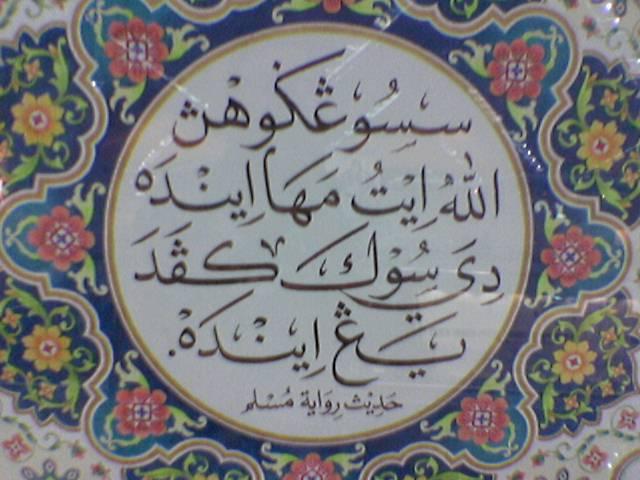 سسوڠݢوهن
اللهُ اِيْتُ مَهَا اينْدَه
دِيَ سُوْك كڤَدَ
يڠ اِينْدَه.
حَدِيْث رِوَاية مُسْلم